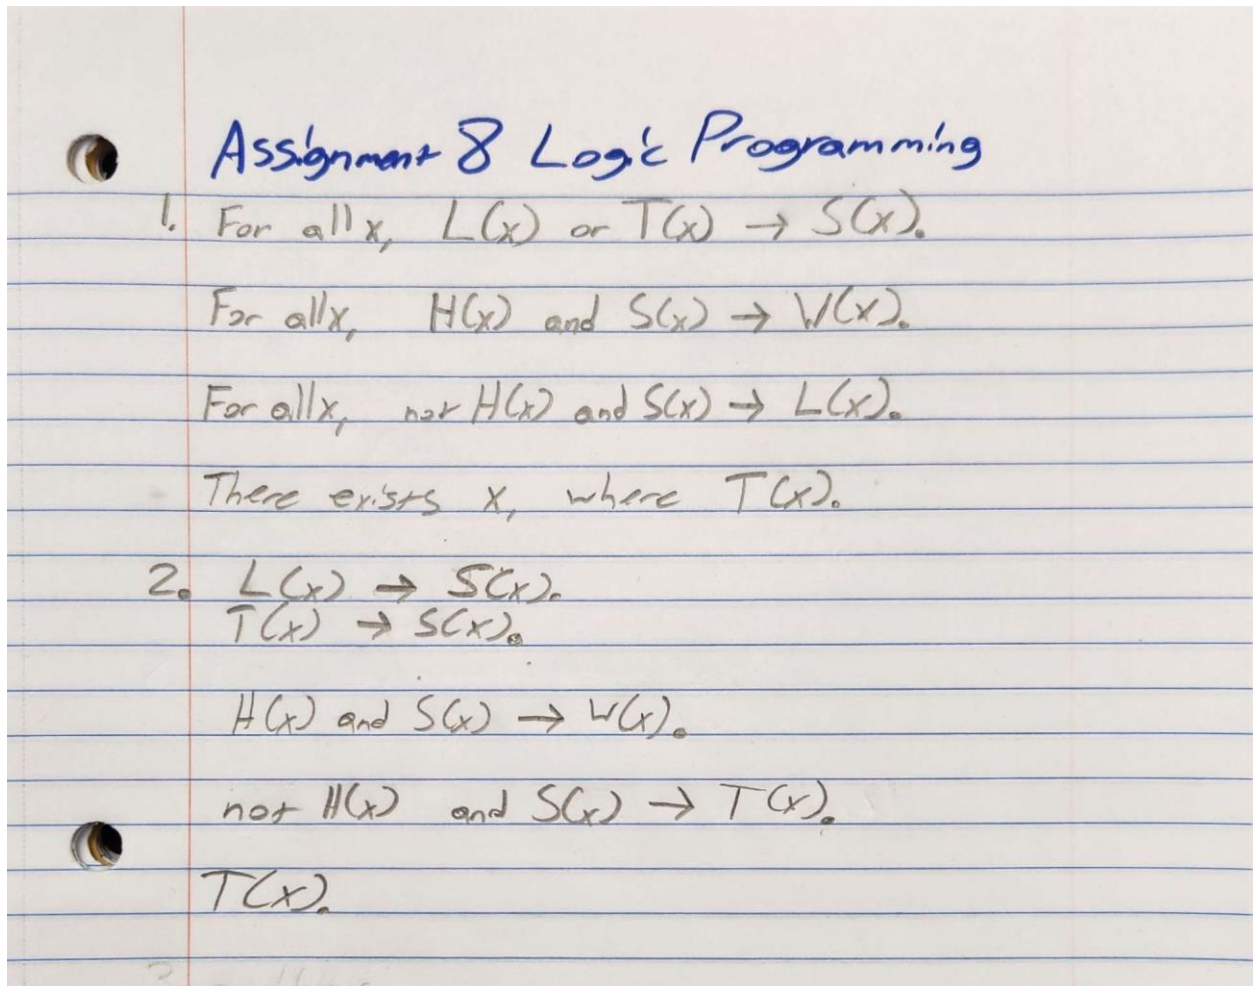 Assignment 8 Logic Programming
1. For all x, L(x) or T(x) → S(x).
For all x, H(x) and S(x) → W(x).
For all x, not H(x) and S(x) → L(x).
There exists x, where T(x).
2. L(x) → S(x).
T(x) → S(x).
H(x) and S(x) → W(x).
not H(x) and S(x) → T(x).
T(x).